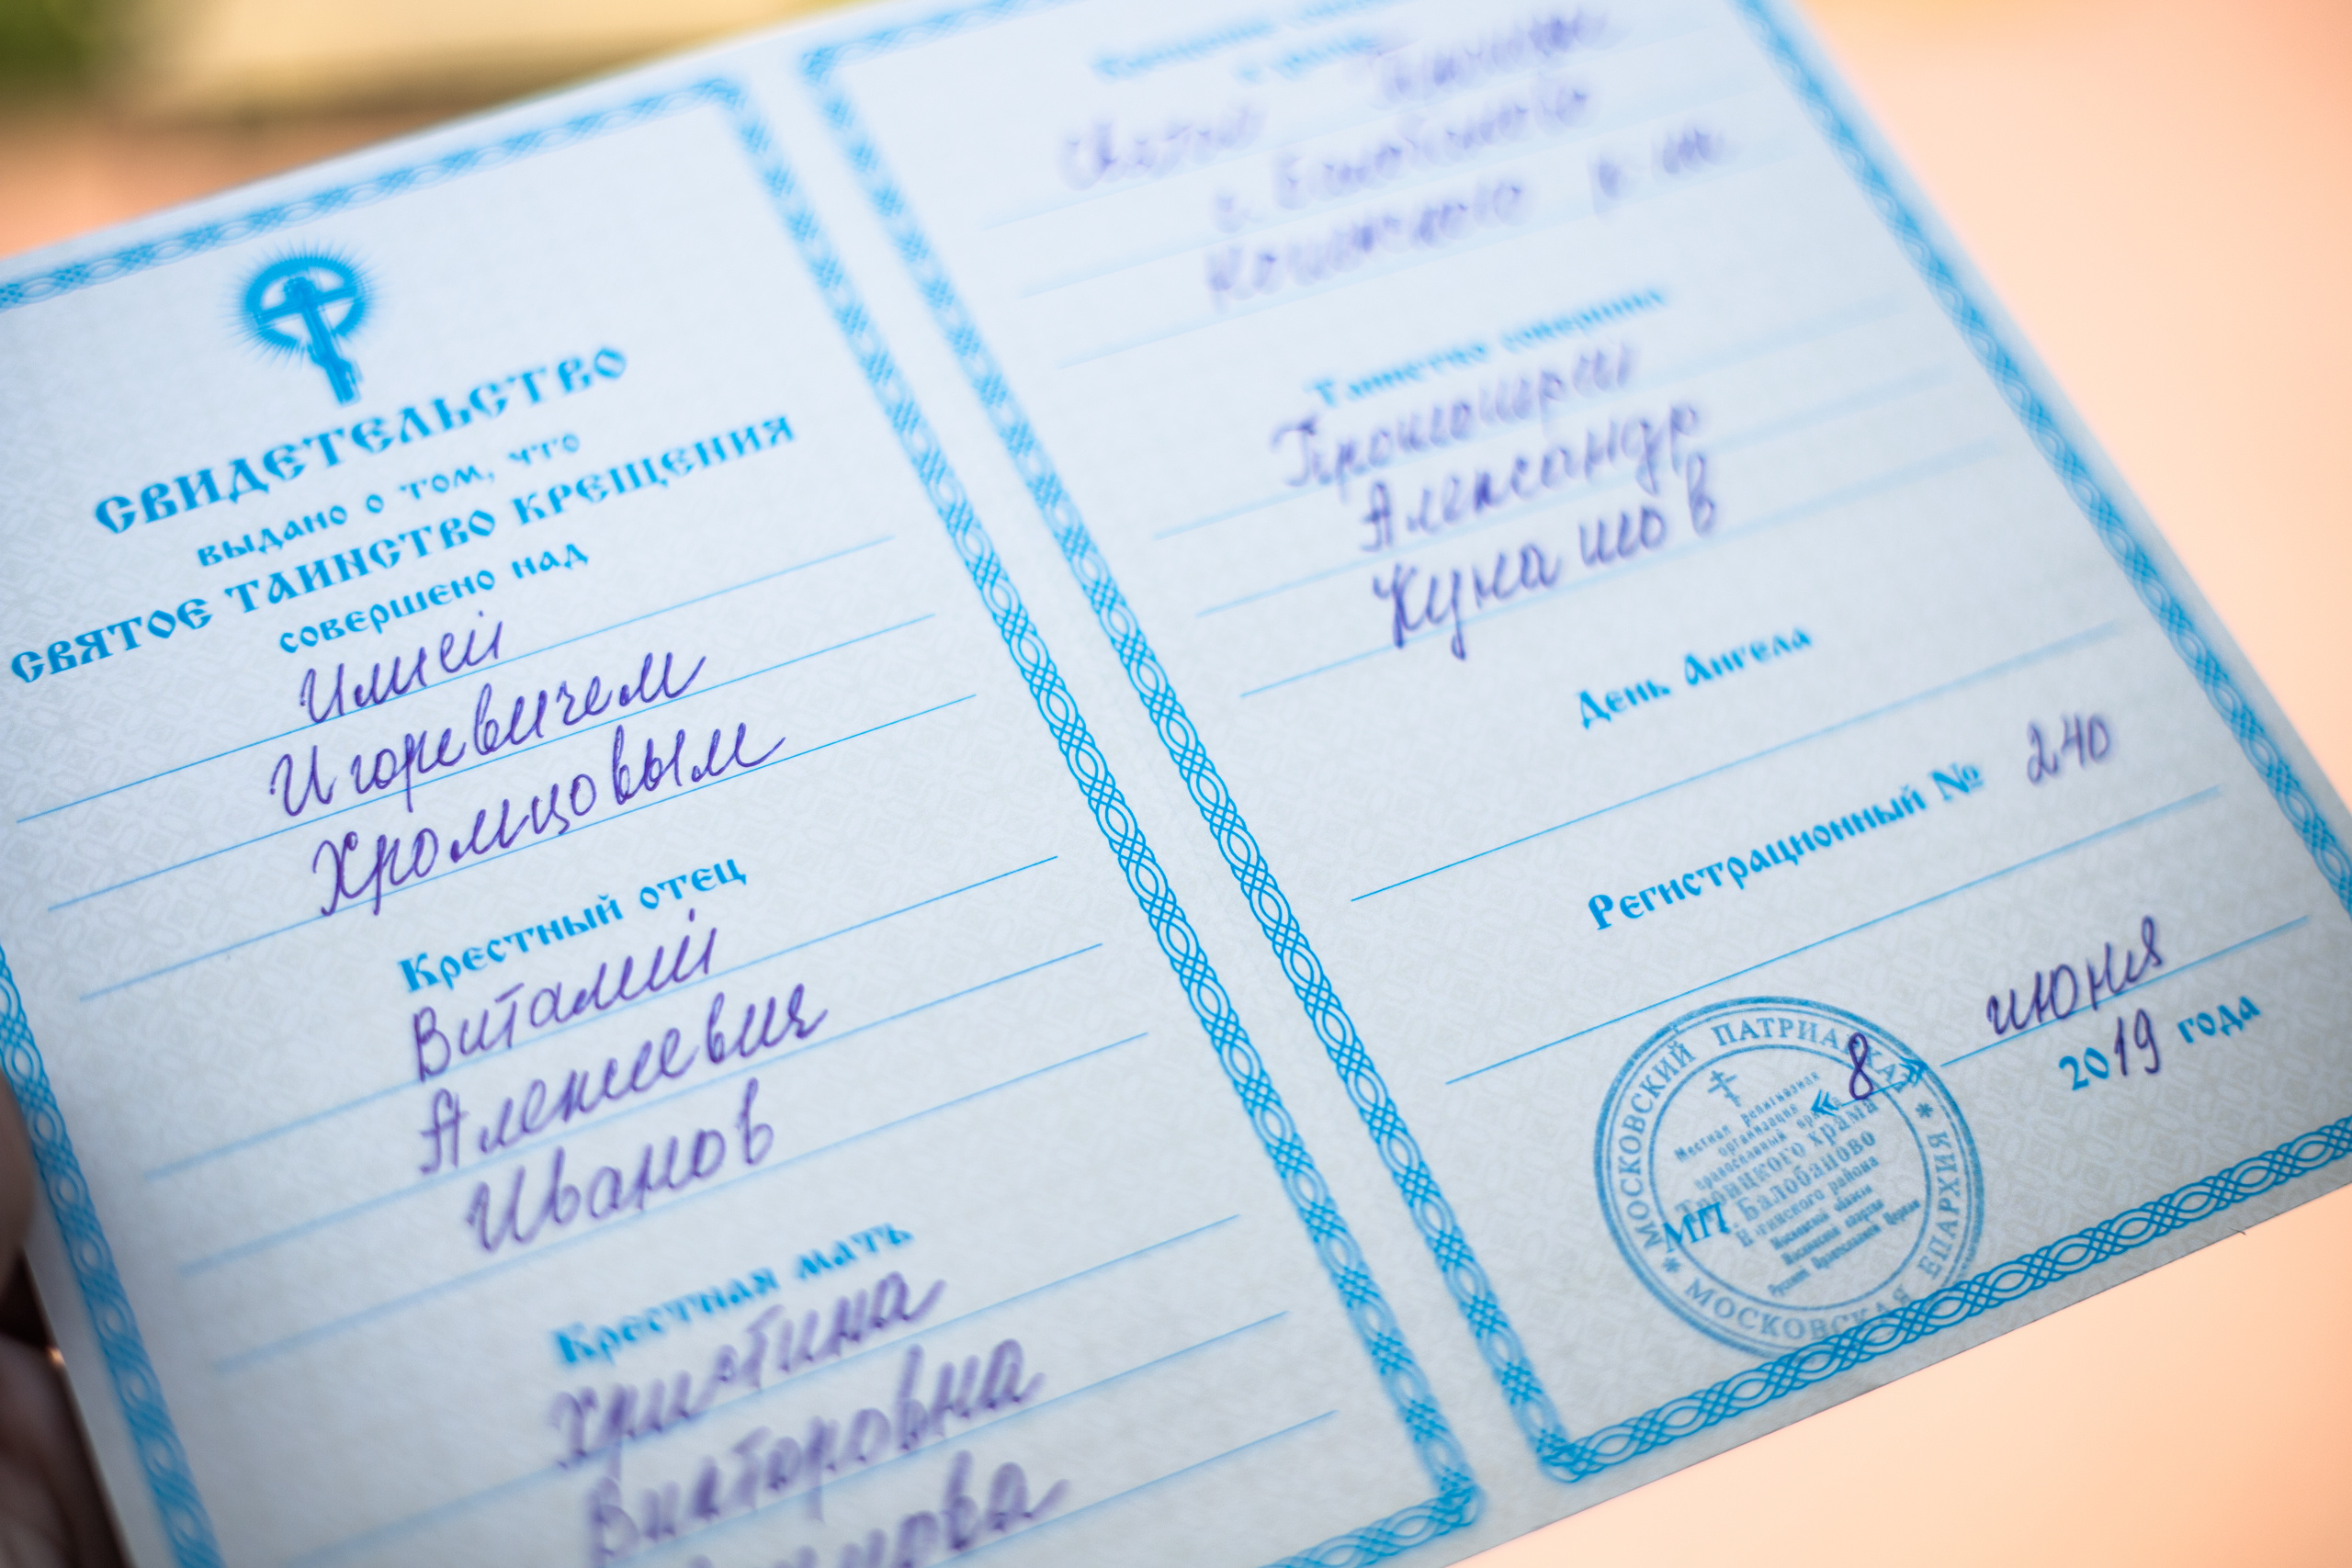 СВИДЕТЕЛЬСТВО
выдано о том, что
СВЯТОЕ ТАИНСТВО КРЕЩЕНИЯ
совершено над
Илией
Игоревичем
Хромцовым
Крестный отец
Виталий
Алексеевич
Иванов
Крестная мать
Христина
Викторовна
Таинство совершил
Протоиерей
Александр
Кунашов
День Ангела
Регистрационный № 240
«8» июня
2019 года
МП
МОСКОВСКИЙ ПАТРИАРХАТ * МОСКОВСКАЯ ЕПАРХИЯ *
Местная религиозная
организация
православный приход
Троицкого храма
Балобаново
района
Московской области
Московской епархии
Русской Православной Церкви